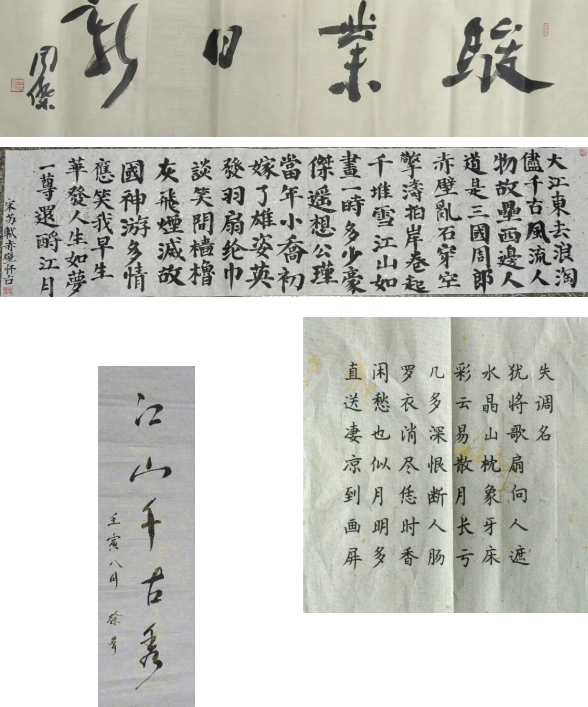 駿業日新
周傑
大江東去浪淘
儘千古風流人
物故壘西邊人
道是三國周郎
赤壁亂石穿空
擎濤拍岸卷起
千堆雪江山如
畫一時多少豪
傑遥想公瑾
當年小喬初
嫁了雄姿英
發羽扇纶巾
談笑間檣櫓
灰飛煙滅故
國神游多情
應笑我早生
華發人生如夢
一尊還酹江月
宋苏軾赤壁怀古
江山千古秀
壬寅八月 徐
失调名
犹将歌扇向人遮
水晶山枕象牙床
彩云易散月长亏
几多深恨断人肠
罗衣消尽恁时香
闲愁也似月明多
直送凄凉到画屏